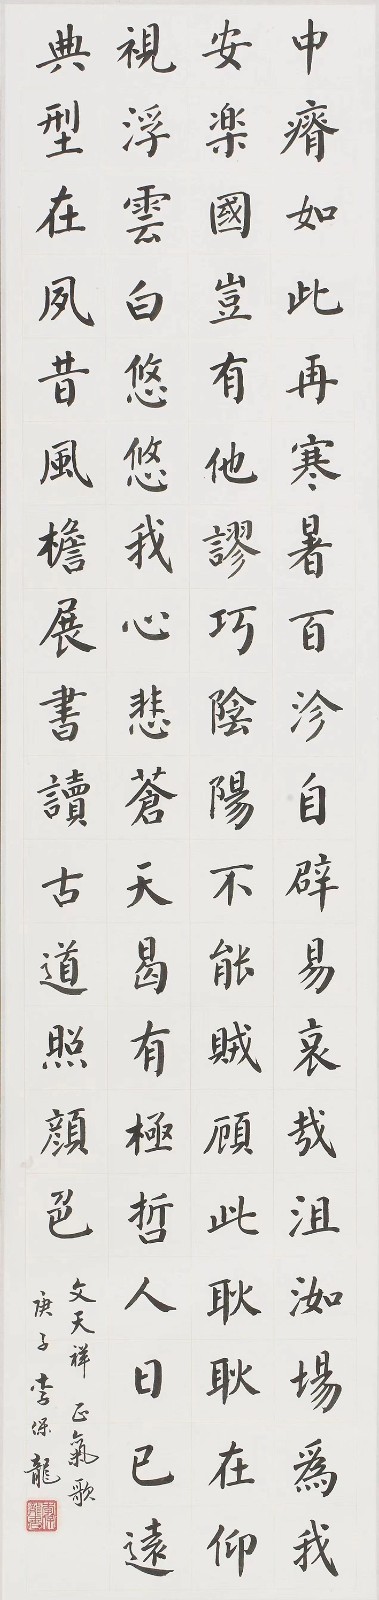 中瘠如此再寒暑百沴自辟易哀哉沮洳場爲我
安楽國豈有他謬巧陰陽不能賊顧此耿耿在仰
視浮雲白悠悠我心悲蒼天曷有極哲人日已遠
典型在夙昔風檐展書讀古道照顔色
文天祥 正氣歌
庚子 李保龍